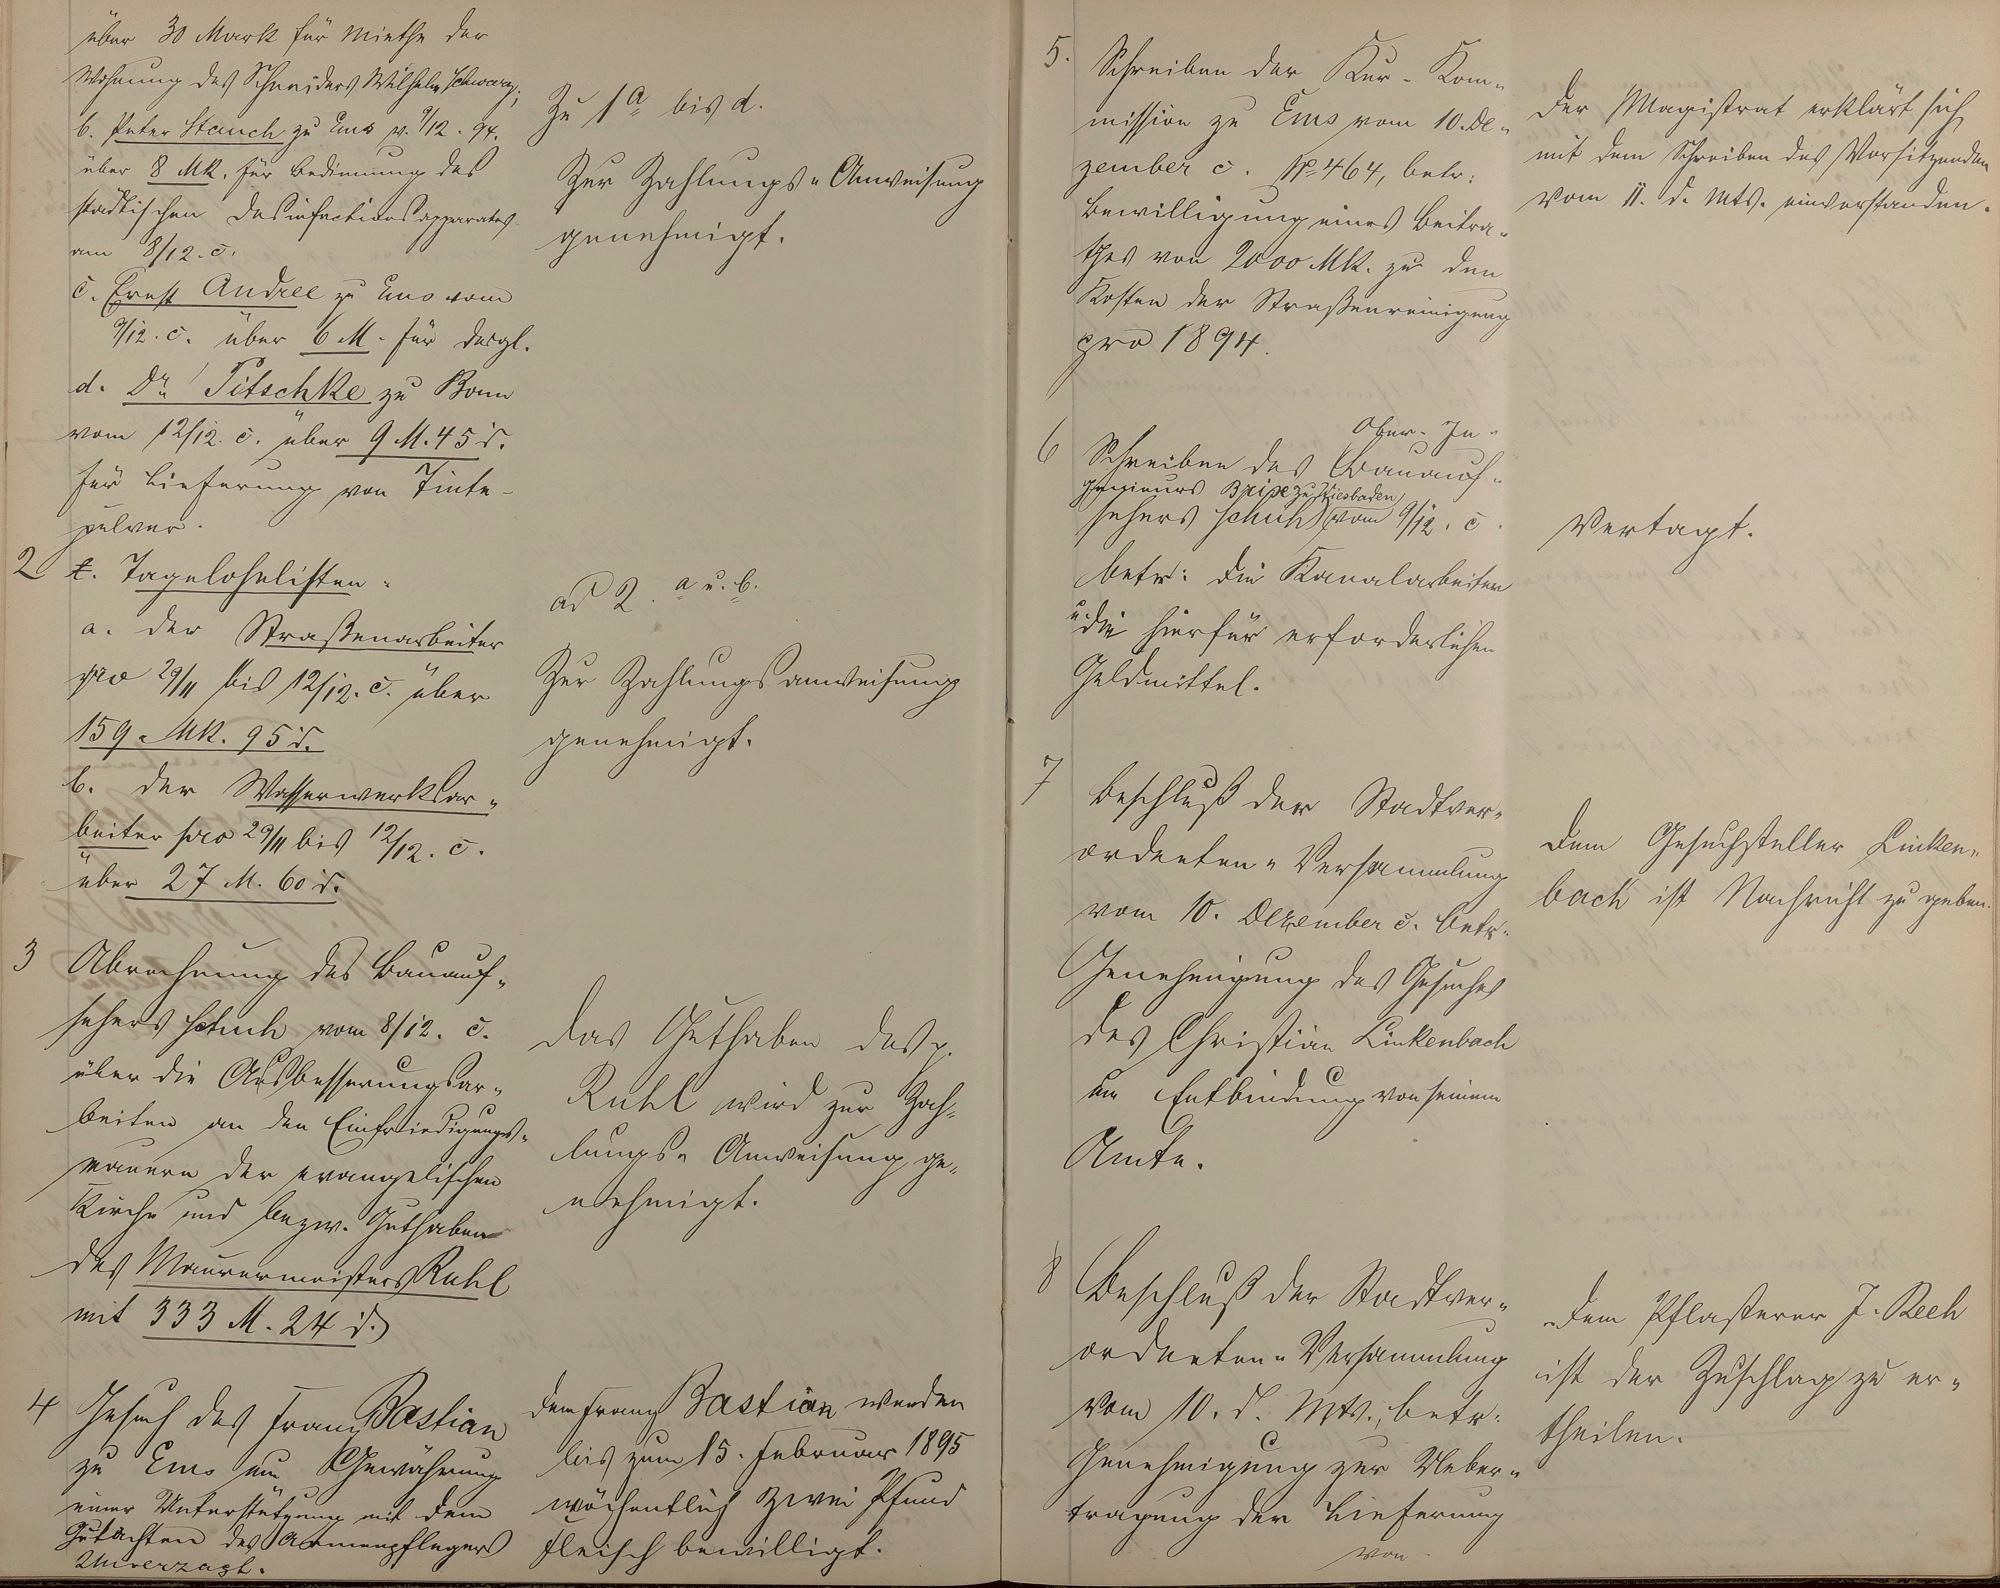 über 30 Mark für Miethe der
Wohnung des Schneiders Wilhelm Schwarz;
b. Peter Stauch zu Ems v. 9/12. 94.
über 8 Mk. für Bedienung des
städtischen Desinfectionsapparates
am 8/12. c.
c. Ernst Andree zu Ems vom
9/12. c. über 6 M. für desgl.
d. Dr. Pitschke zu Bonn
vom 12/12. c. über 9 M. 45 d.
für Lieferung von Tinte-
pulver.
Zu 1 a bis d.
Zur Zahlungs-Anweisung
genehmigt.
2 Tagelohnlisten.
a. der Straßenarbeiter
pro 29/11 bis 12/12. c. über
159 Mk. 95 d.
b. der Wasserwerksar-
beiter pro 29/11 bis 12/12. c.
über 27 M. 60 d.
ad 2. a u. b.
Zur Zahlungsanweisung
genehmigt.
3 Abrechnung des Bauauf-
sehers Schuh vom 8/12. c.
über die Ausbesserungsar-
beiten an den Einfriedigungs-
mauern der evangelischen
Kirche und bezw. Guthaben
des Maurermeisters Ruhl
mit 333 M. 24 d.
Das Guthaben des p.
Ruhl wird zur Zah-
lungs-Anweisung ge-
nehmigt.
4 Gesuch des Franz Bastian
zu Ems um Gewährung
einer Unterstützung mit dem
Gutachten des Armenpflegers
Unverzagt.
Dem Franz Bastian werden
bis zum 15. Februar 1895
wöchentlich zwei Pfund
Fleisch bewilligt.
5. Schreiben der Kur-Kom-
mission zu Ems vom 10. De-
zember c. No 464, betr:
Bewilligung eines Beitra-
ges von 2000 Mk. zu den
Kosten der Straßenreinigung
pro 1894.
Der Magistrat erklärt sich
mit dem Schreiben des Vorsitzenden
vom 11. d. Mts. einverstanden.
6 Schreiben des Bauauf-
Ober-In-
genieurs Brix zu Wiesbaden
sehers Schuh vom 9/12. c.
betr: die Kanalarbeiten
u. die hierfür erforderlichen
Geldmittel.
Vertagt.
7 Beschluß der Stadtver-
ordneten-Versammlung
vom 10. Dezember c. betr.
Genehmigung des Gesuches
des Christian Linkenbach
um Entbindung von seinem
Amte.
Dem Gesuchsteller Linken-
bach ist Nachricht zu geben.
8 Beschluß der Stadtver-
ordneten-Versammlung
vom 10. d. Mts., betr.
Genehmigung zur Ueber-
tragung der Lieferung
von
Dem Pflasterer J. Rech
ist der Zuschlag zu er-
theilen.